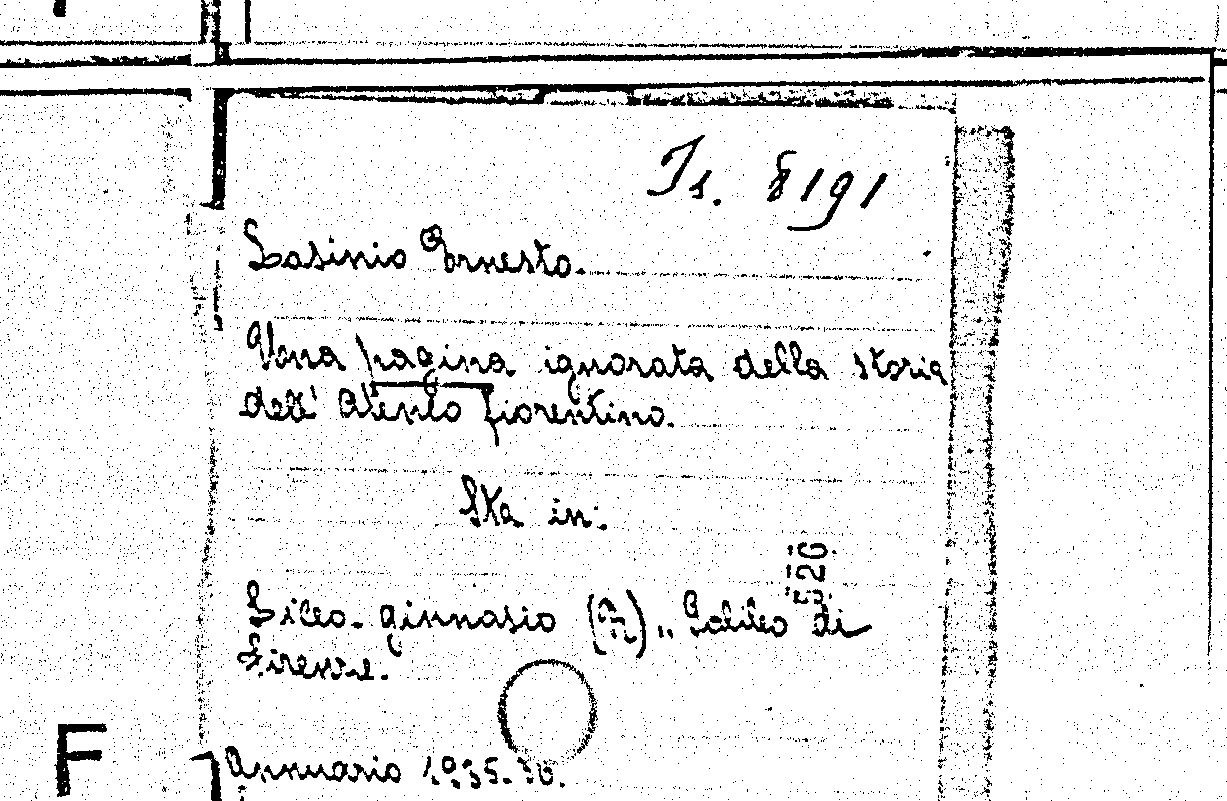 Is. 8191
Lasinio Ernesto.
Una pagina ignorata della storia
dell' Ateneo fiorentino.
Sta in:
526
Liceo-ginnasio (R) „Galileo di
Firenze.
F
Annuario 1935-36.